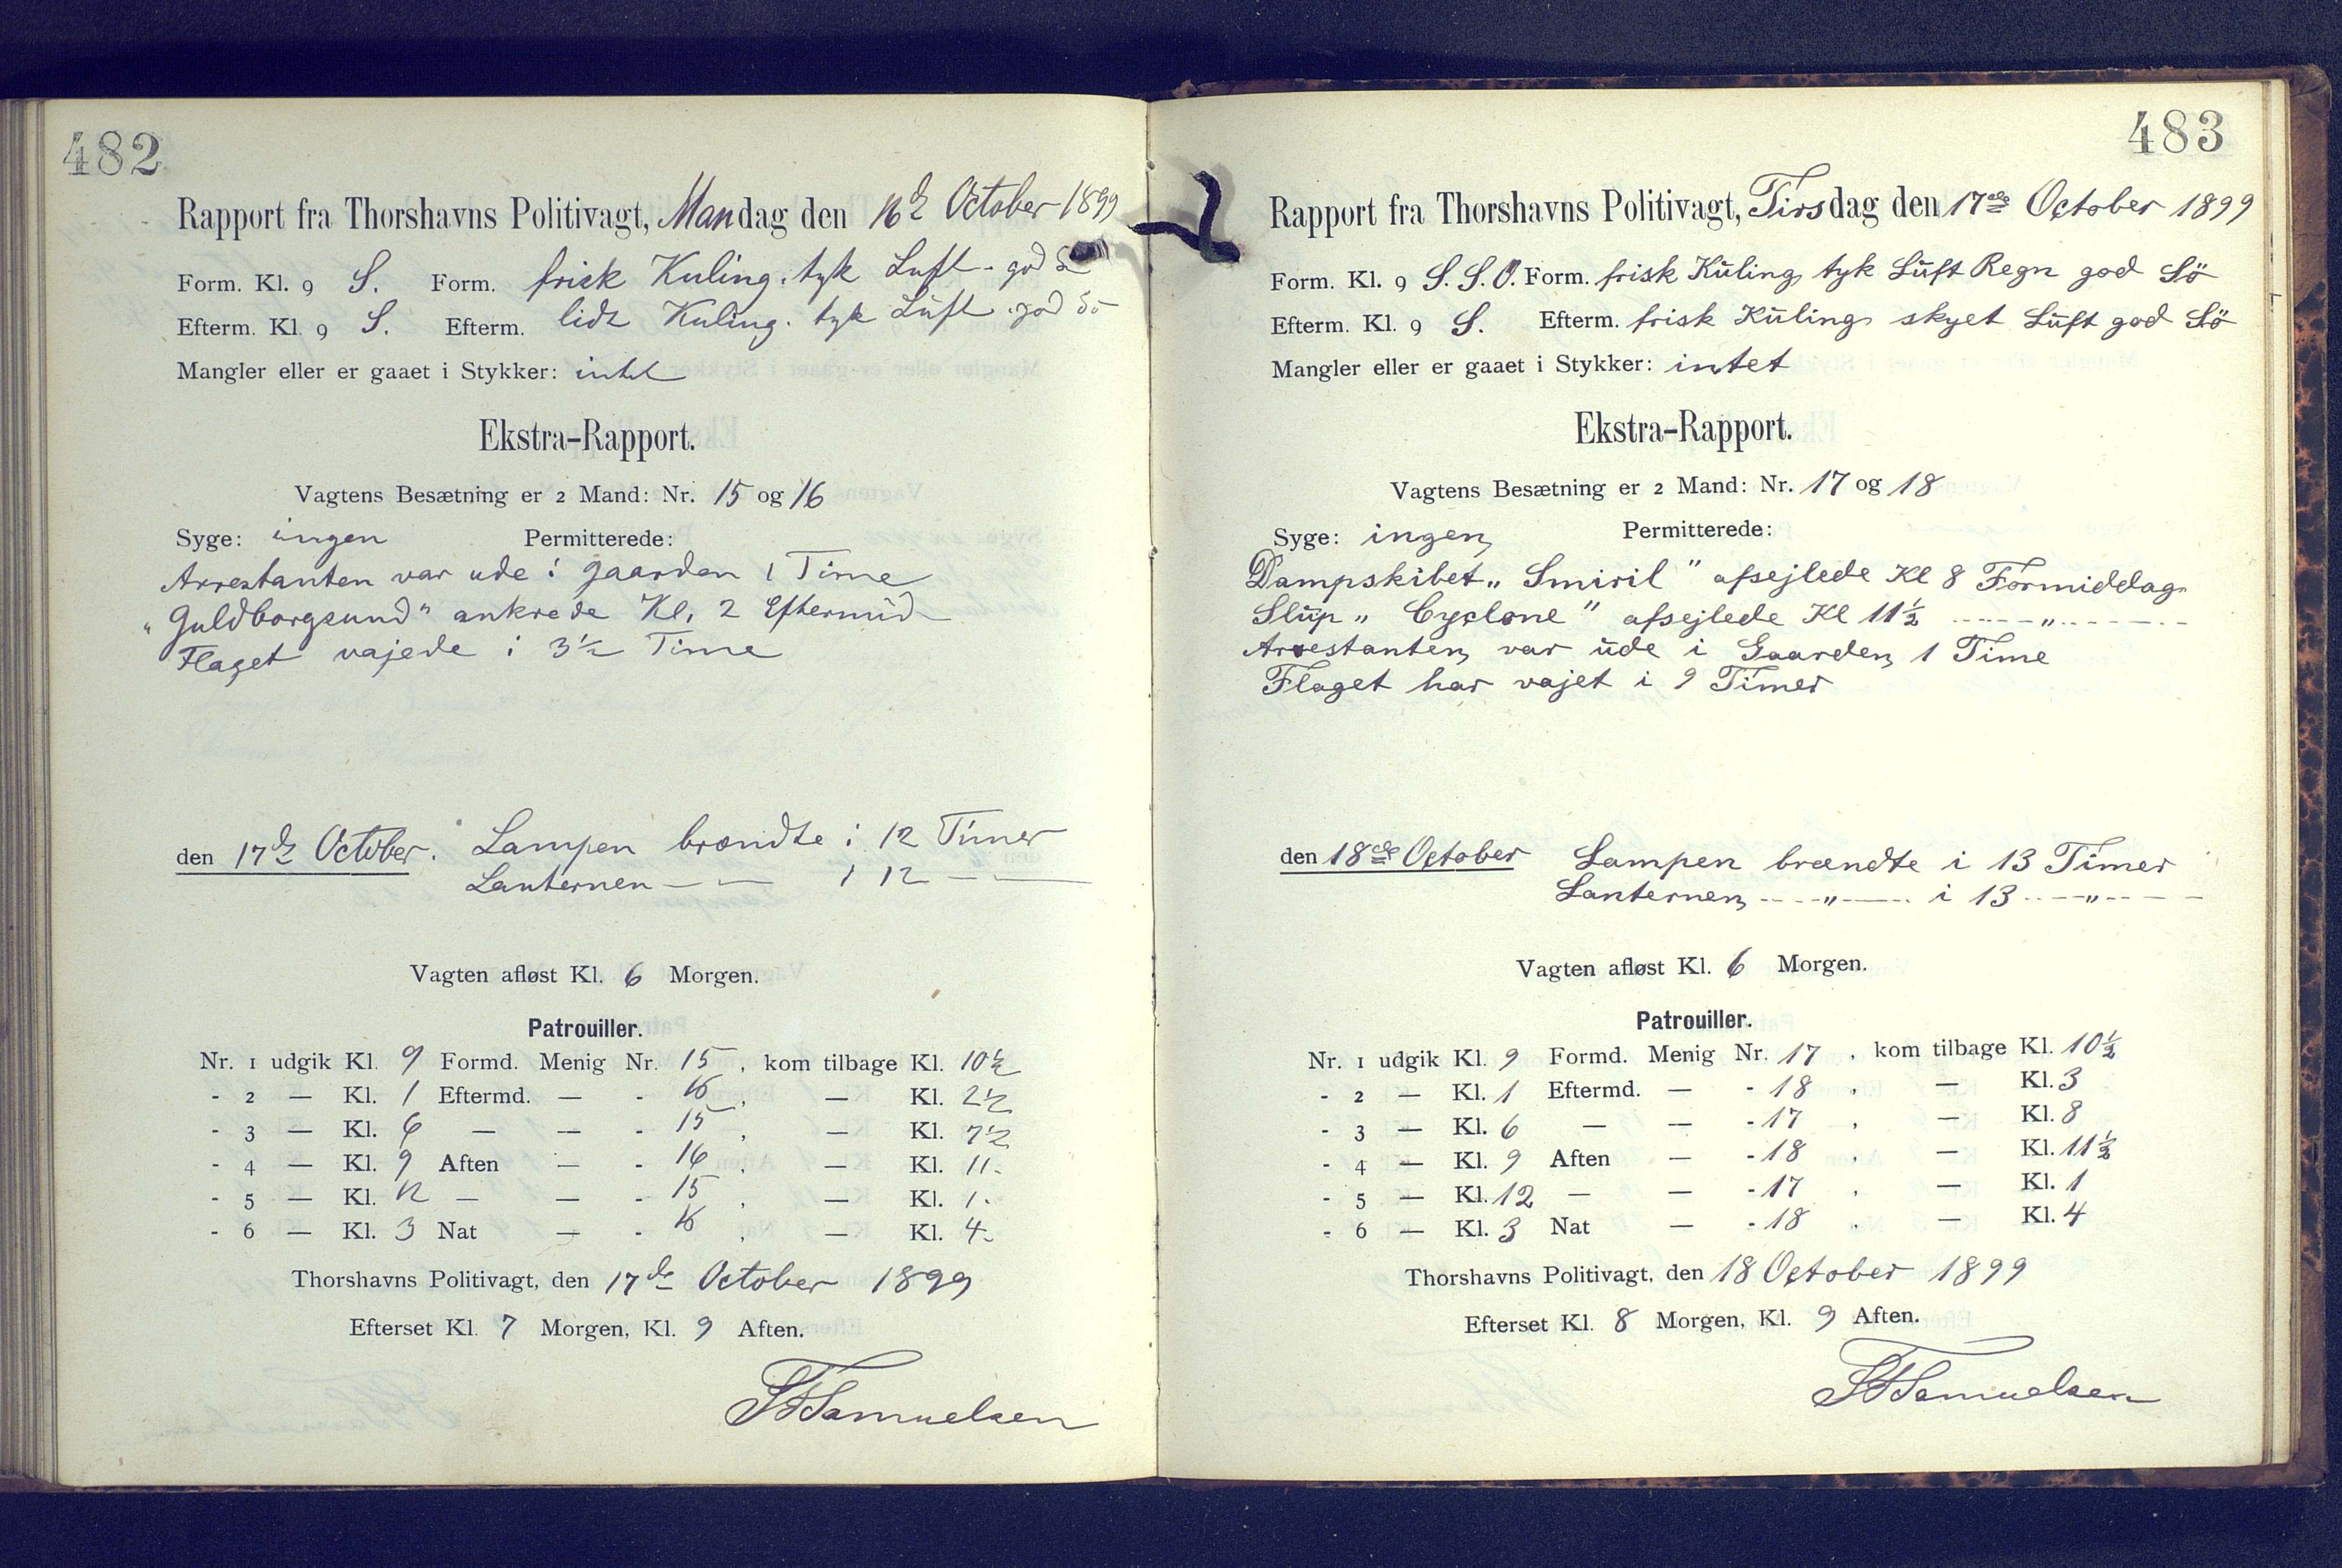 482
Rapport fra Thorshavns Politivagt, Mandag den 16d October 1899
Form. Kl. 9 S. Form. frisk Kuling. tyk Luft. god
Efterm. Kl. 9 S. Efterm. lidt Kuling. tyk Luft. god Sö
Mangler eller er gaaet i Stykker: intet
Ekstra-Rapport.
Vagtens Besætning er 2 Mand: Nr. 15 og 16
Syge: ingen Permitterede:
Arrestanten var ude i Gaarden 1 Time
"Guldborgsund" ankrede Kl. 2 Eftermid
Flaget vajede i 3½ Time
den 17de October. Lampen brændte i 12 Timer
Lanternen — — i 12 — —
Vagten afløst Kl. 6 Morgen.
Patrouiller.
Nr. 1 udgik Kl. 9 Formd. Menig Nr. 15, kom tilbage Kl. 10½
- 2 — Kl. 1 Eftermd. — - 16, — Kl. 2½
- 3 — Kl. 6 — — - 15, — Kl. 7½
- 4 — Kl. 9 Aften — - 16, — Kl. 11.
- 5 — Kl. 12 — — - 15, — Kl. 1.
- 6 — Kl. 3 Nat — - 16, — Kl. 4.
Thorshavns Politivagt, den 17de October 1899
Efterset Kl. 7 Morgen, Kl. 9 Aften.
Samuelsen
483
Rapport fra Thorshavns Politivagt, Tirsdag den 17de October 1899
Form. Kl. 9 S. S. O. Form. frisk Kuling tyk Luft Regn god Sö
Efterm. Kl. 9 S. Efterm. frisk Kuling skyet Luft god Sö
Mangler eller er gaaet i Stykker: intet
Ekstra-Rapport.
Vagtens Besætning er 2 Mand: Nr. 17 og 18
Syge: ingen Permitterede:
Dampskibet „Smiril" afsejlede Kl 8 Formiddag
Slup „Cyclone" afsejlede Kl 11½ — „ —
Arrestanten var ude i Gaarden 1 Time
Flaget har vajet i 9 Timer
den 18de October Lampen brændte i 13 Timer
Lanternen — „ — i 13 — „ —
Vagten afløst Kl. 6 Morgen.
Patrouiller.
Nr. 1 udgik Kl. 9 Formd. Menig Nr. 17, kom tilbage Kl. 10½
- 2 — Kl. 1 Eftermd. — - 18, — Kl. 3
- 3 — Kl. 6 — — - 17, — Kl. 8
- 4 — Kl. 9 Aften — - 18, — Kl. 11½
- 5 — Kl. 12 — — - 17, — Kl. 1
- 6 — Kl. 3 Nat — - 18, — Kl. 4
Thorshavns Politivagt, den 18 October 1899
Efterset Kl. 8 Morgen, Kl. 9 Aften.
Samuelsen